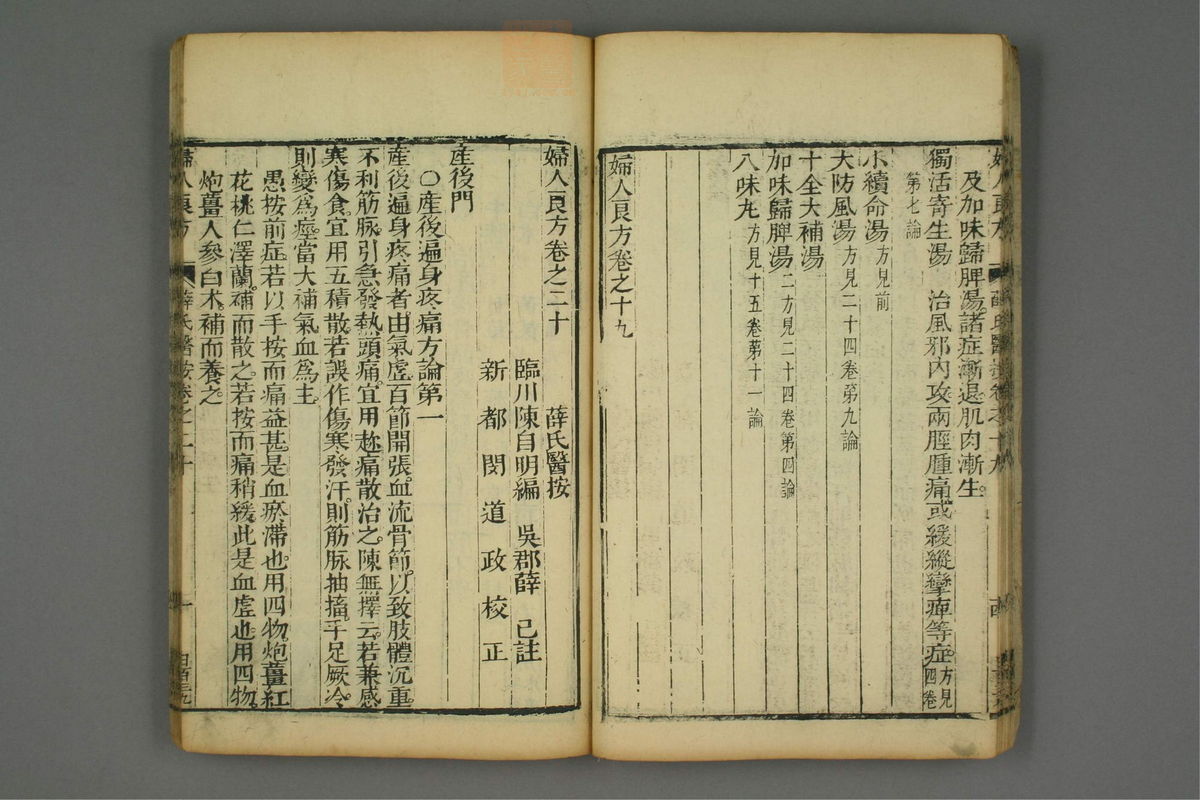 及加味歸脾湯。諸症漸退。肌肉漸生。
獨活寄生湯 治風邪内攻。兩脛腫痛。或緩縱攣痺等症。方見四卷
第七論
小續命湯方見前
大防風湯方見二十四卷第九論
十全大補湯
加味歸脾湯二方見二十四卷第四論
八味丸方見十五卷第十一論
婦人良方卷之十九
婦人良方卷之二十 薛氏醫按
臨川陳自明編 吳郡薛 己註
新都閔道政校正
產後門
○產後遍身疼痛方論第一
產後遍身疼痛者。由氣虛百節開張。血流骨節。以致肢體沉重
不利。筋脉引急。發熱頭痛。宜用趂痛散治之。陳無擇云。若兼感
寒傷食。宜用五積散。若誤作傷寒發汗。則筋脉抽搐。手足厥冷。
則變爲痙。當大補氣血爲主。
愚按前症。若以手按而痛益甚。是血瘀滯也。用四物炮薑紅
花桃仁澤蘭。補而散之。若按而痛稍緩。此是血虛也。用四物
炮薑人參白朮。補而養之。
婦人良方 薛氏醫按卷之二十 一